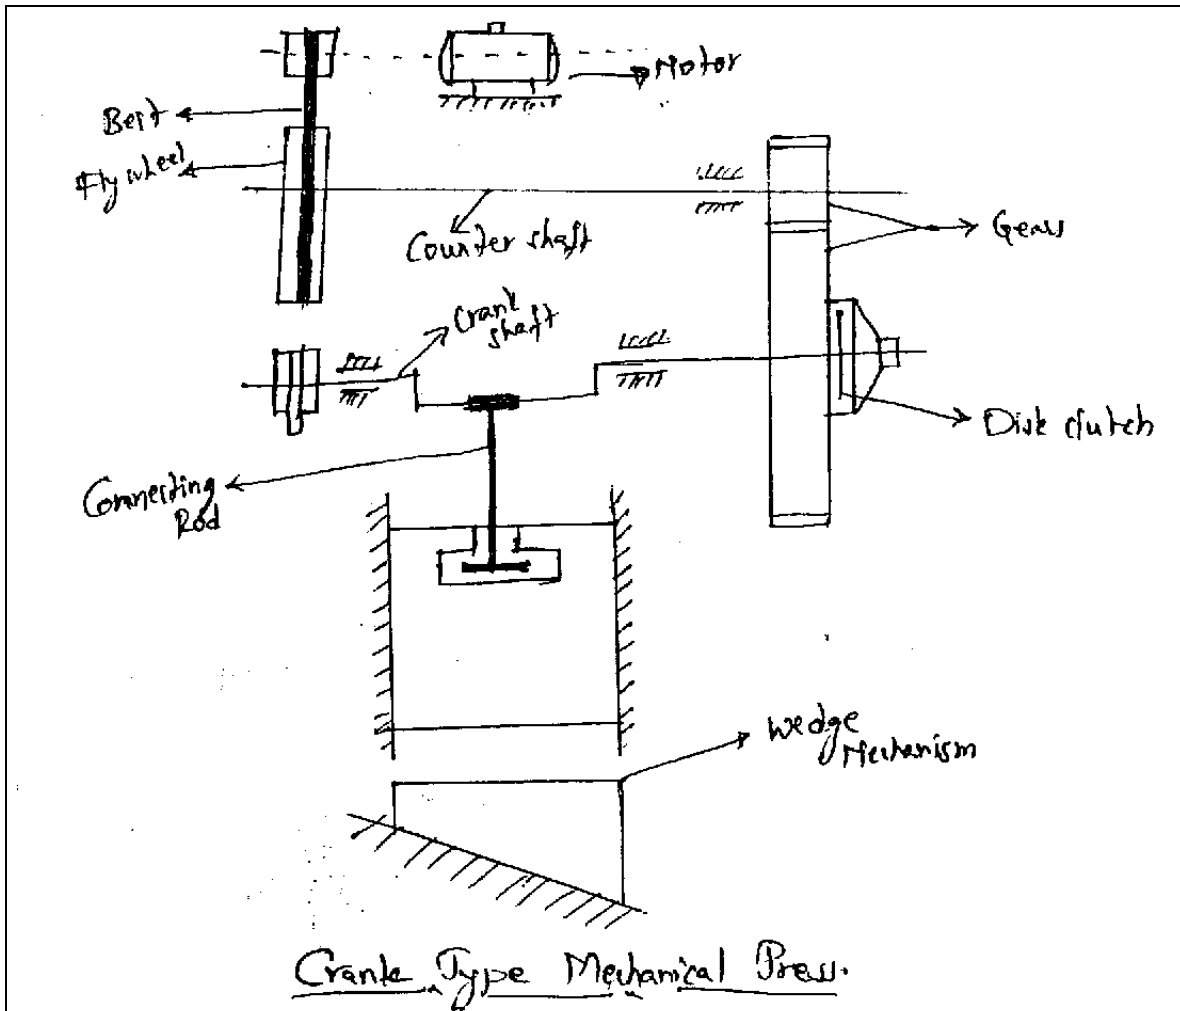 Motor
Belt
Fly wheel
Counter shaft
Gears
Crank
shaft
Disk clutch
Connecting
Rod
Wedge
Mechanism
Crank Type Mechanical Press.